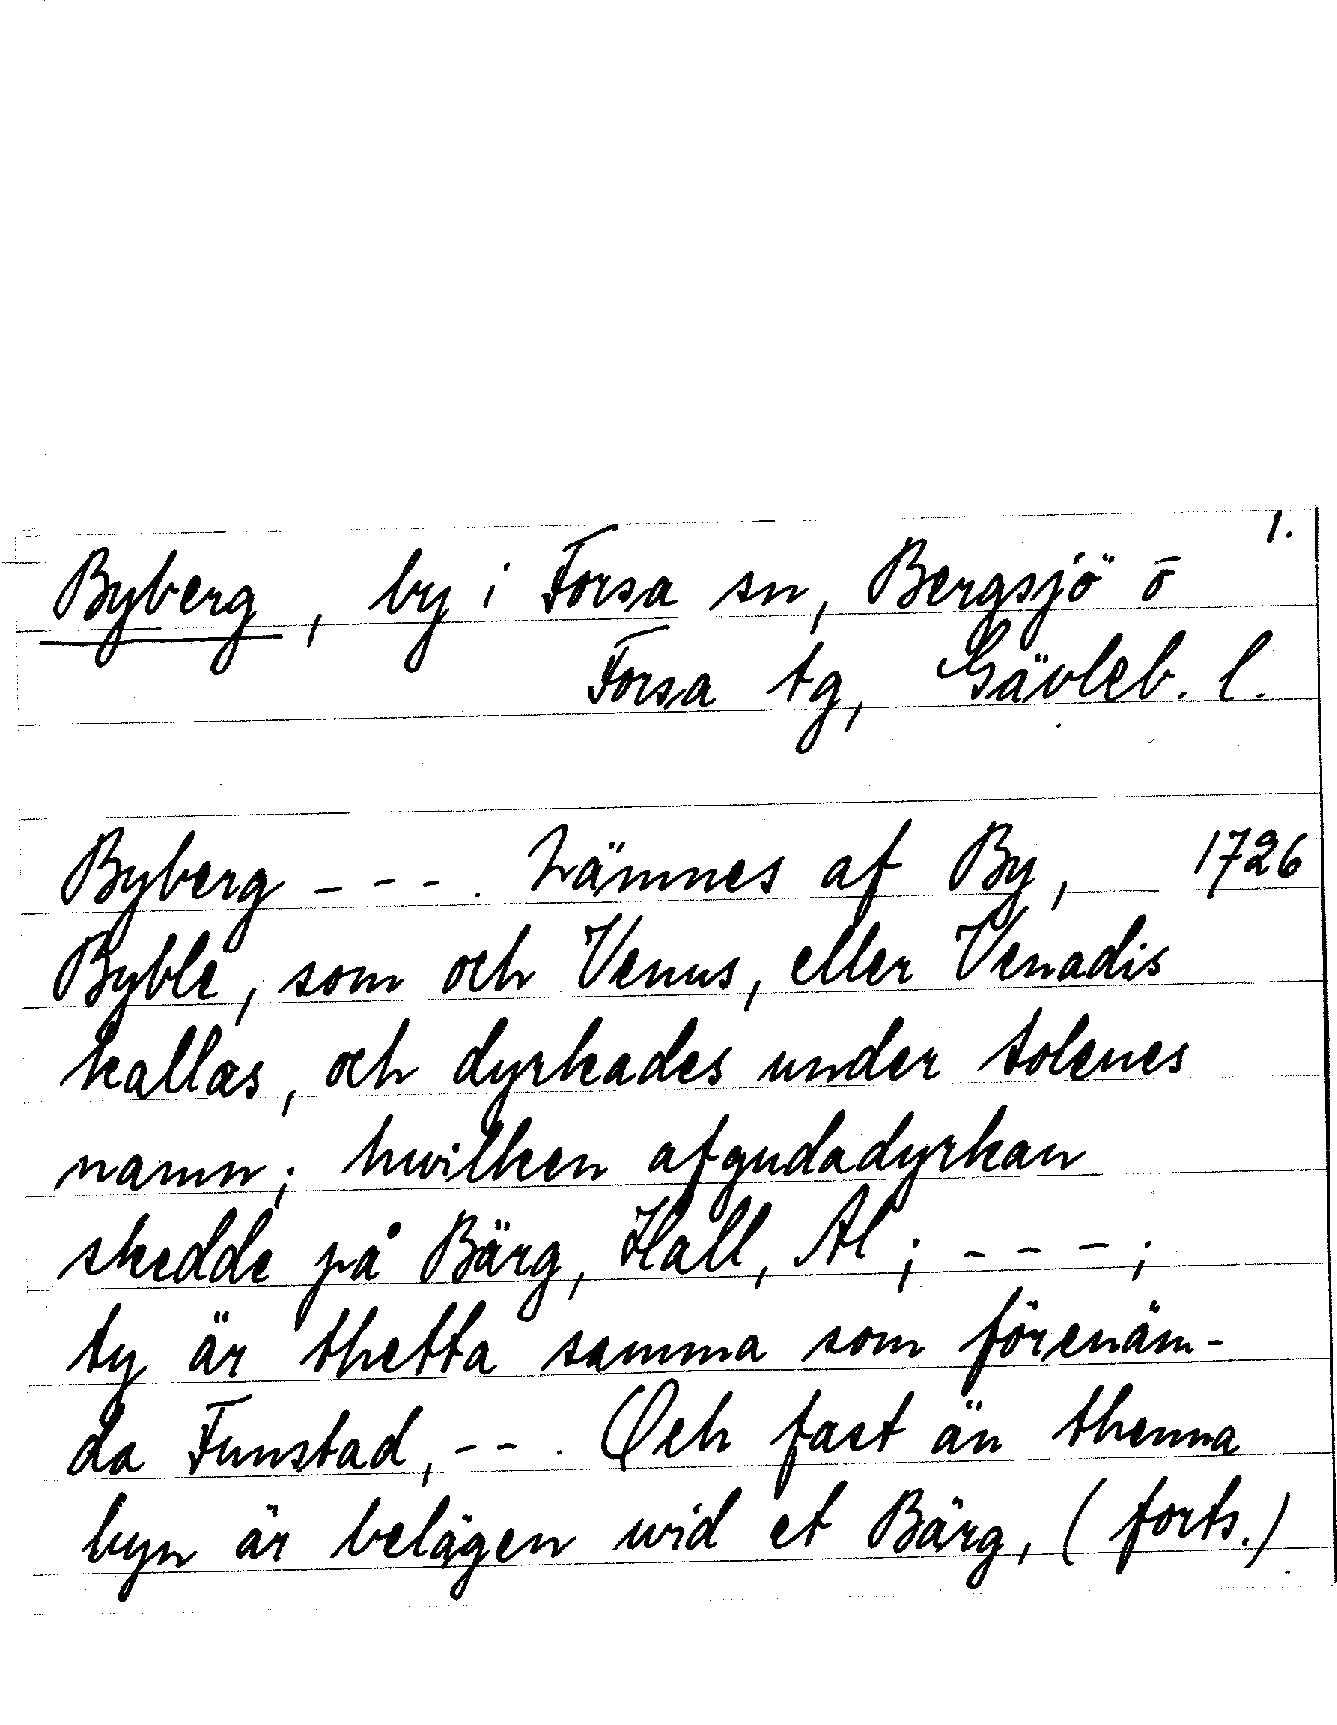 1.
Byberg, by i Forsa sn, Bergsjö o
Forsa tg, Gävleb. l.
Byberg - - - . Nämnes af By, 1726
Byble, som och Venus, eller Venadis
kallas, och dyrkades under tolenes
namn; hwilken afgudadyrkan
skedde på Bärg, Hall, Al; - - - ;
ty är thetta samma som förenäm-
da Funstad, - - . Och fast än thenna
byn är belägen wid et Bärg, (forts.)